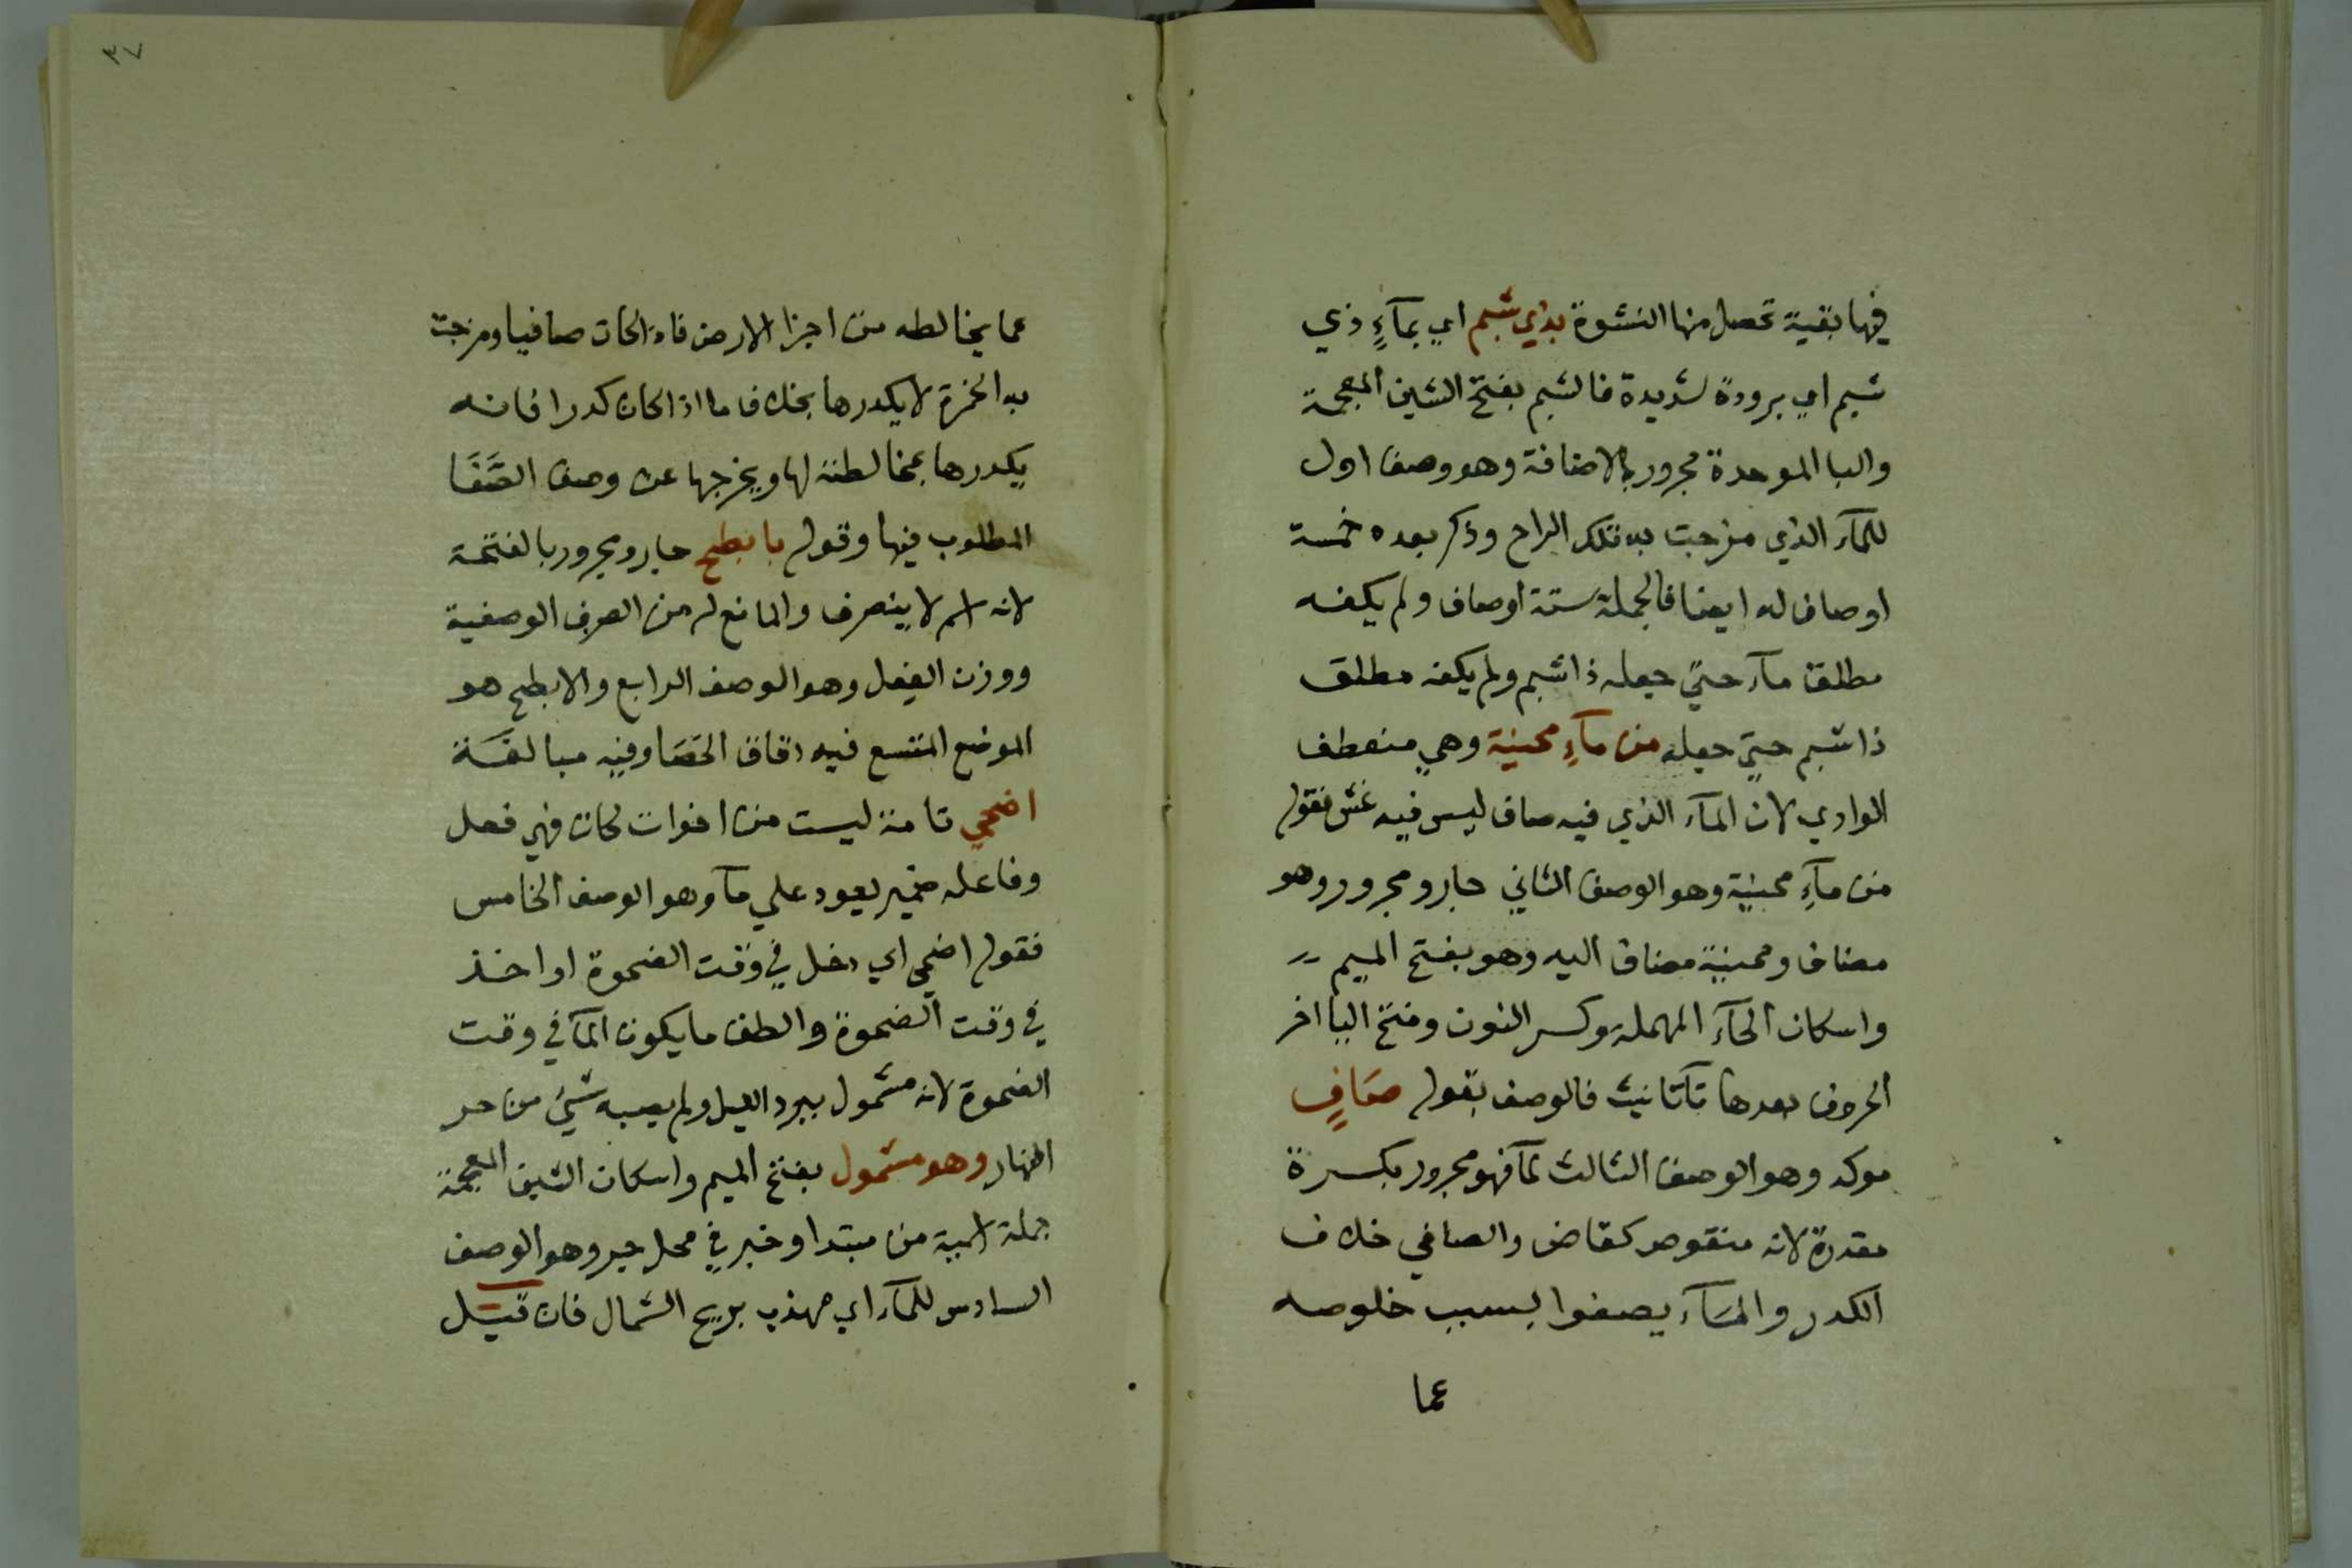 فيها بقية تحصل منها النشوة بذي شبم اي بمآءٍ ذي
شبم اي برودة شديدة فالشبم بفتح الشين المعجمة
والبا الموحدة مجرور بالاضافة وهو وصف اول
للمآء الذي مزجت به تلك الراح وذكر بعده خمسة
اوصاف له ايضا فالجملة ستة اوصاف ولم يكفه
مطلق مآء حتي جعله ذا شبم ولم يكفه مطلق
ذا شبم حتي جعله من مآءِ محنية وهي منعطف
الوادي لان المآء الذي فيه صاف ليس فيه غش فقوله
من مآءِ محنية وهو الوصف الثاني جار ومجرور وهو
مضاف ومحنية مضاف اليه وهو بفتح الميم
واسكان الحآء المهملة وكسر النون وفتح اليا اخر
الحروف بعدها تآ تانيث فالوصف بقوله صَافٍ
موكد وهو الوصف الثالث لمآ فهو مجرور بكسرة
مقدرة لانه منقوص كقاض والصافي خلاف
الكدر والمآء يصفوا بسبب خلوصه
عما
٣٧
عما يخالطه من اجزا الارض فاذا كان صافيا ومزجت
به الخمرة لا يكدرها بخلاف ما اذا كان كدرا فانه
يكدرها بمخالطته لها ويخرجها عن وصف الصَّفَا
المطلوب فيها وقوله بابطح جار ومجرور بالفتحة
لانه اسم لا ينصرف والمانع له من الصرف الوصفية
ووزن الفعل وهو الوصف الرابع والابطح هو
الموضع المتسع فيه دقاق الحصَا وفيه مبالغة
اضحي تامة ليست من اخوات كان فهي فعل
وفاعله ضمير يعود علي مآ وهو الوصف الخامس
فقوله اضحي اي دخل في وقت الضحوة او اخذ
في وقت الضحوة والطف ما يكون المآ في وقت
الضحوة لانه مشمول ببرد الليل ولم يصبه شيء من حر
النهار وهو مشمول بفتح الميم واسكان الشين المعجمة
جملة اسمية من مبتدا وخبر في محل جر وهو الوصف
السادس للمآء اي مهذب بريح الشمال فان قيل